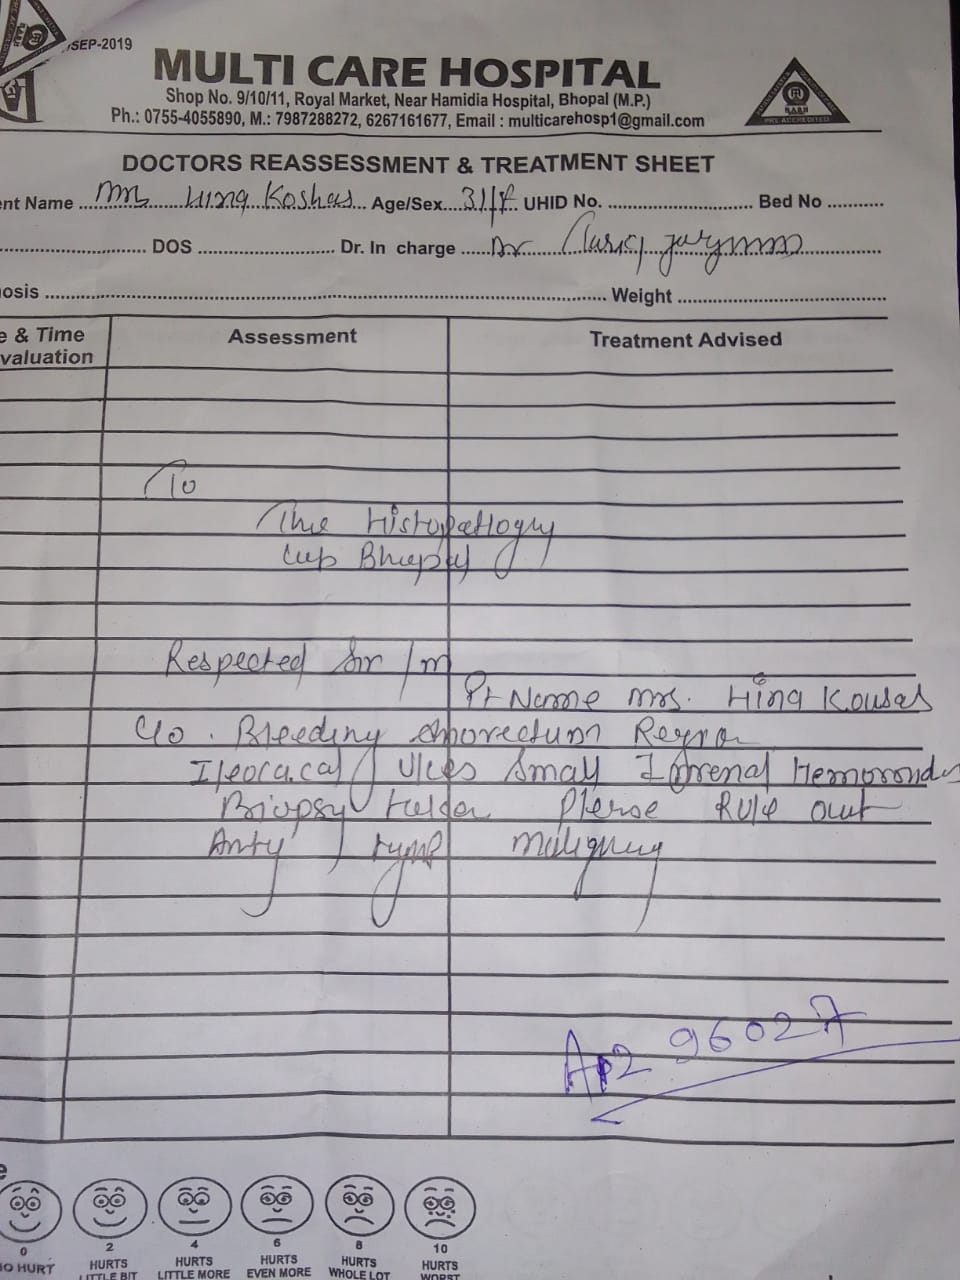 SEP-2019
MULTI CARE HOSPITAL
Shop No. 9/10/11, Royal Market, Near Hamidia Hospital, Bhopal (M.P.)
Ph.: 0755-4055890, M.: 7987288272, 6267161677, Email : multicarehosp1@gmail.com
PRE ACCREDITED
DOCTORS REASSESSMENT & TREATMENT SHEET
nt Name Mrs Hina Koshas Age/Sex 31/F UHID No. Bed No
DOS Dr. In charge Dr
osis Weight
e & Time Assessment Treatment Advised
valuation
To
The Histopathogy
Respected Sir / m
Pt Name Mrs. Hina Kousas
C/o . Bleeding Anorectum Region
Ileocacal Ulces Small Internal Hemoroids
Biopsy Please Rule out
Any type
96027
0 2 4 6 8 10
NO HURT HURTS LITTLE BIT HURTS LITTLE MORE HURTS EVEN MORE HURTS WHOLE LOT HURTS WORST